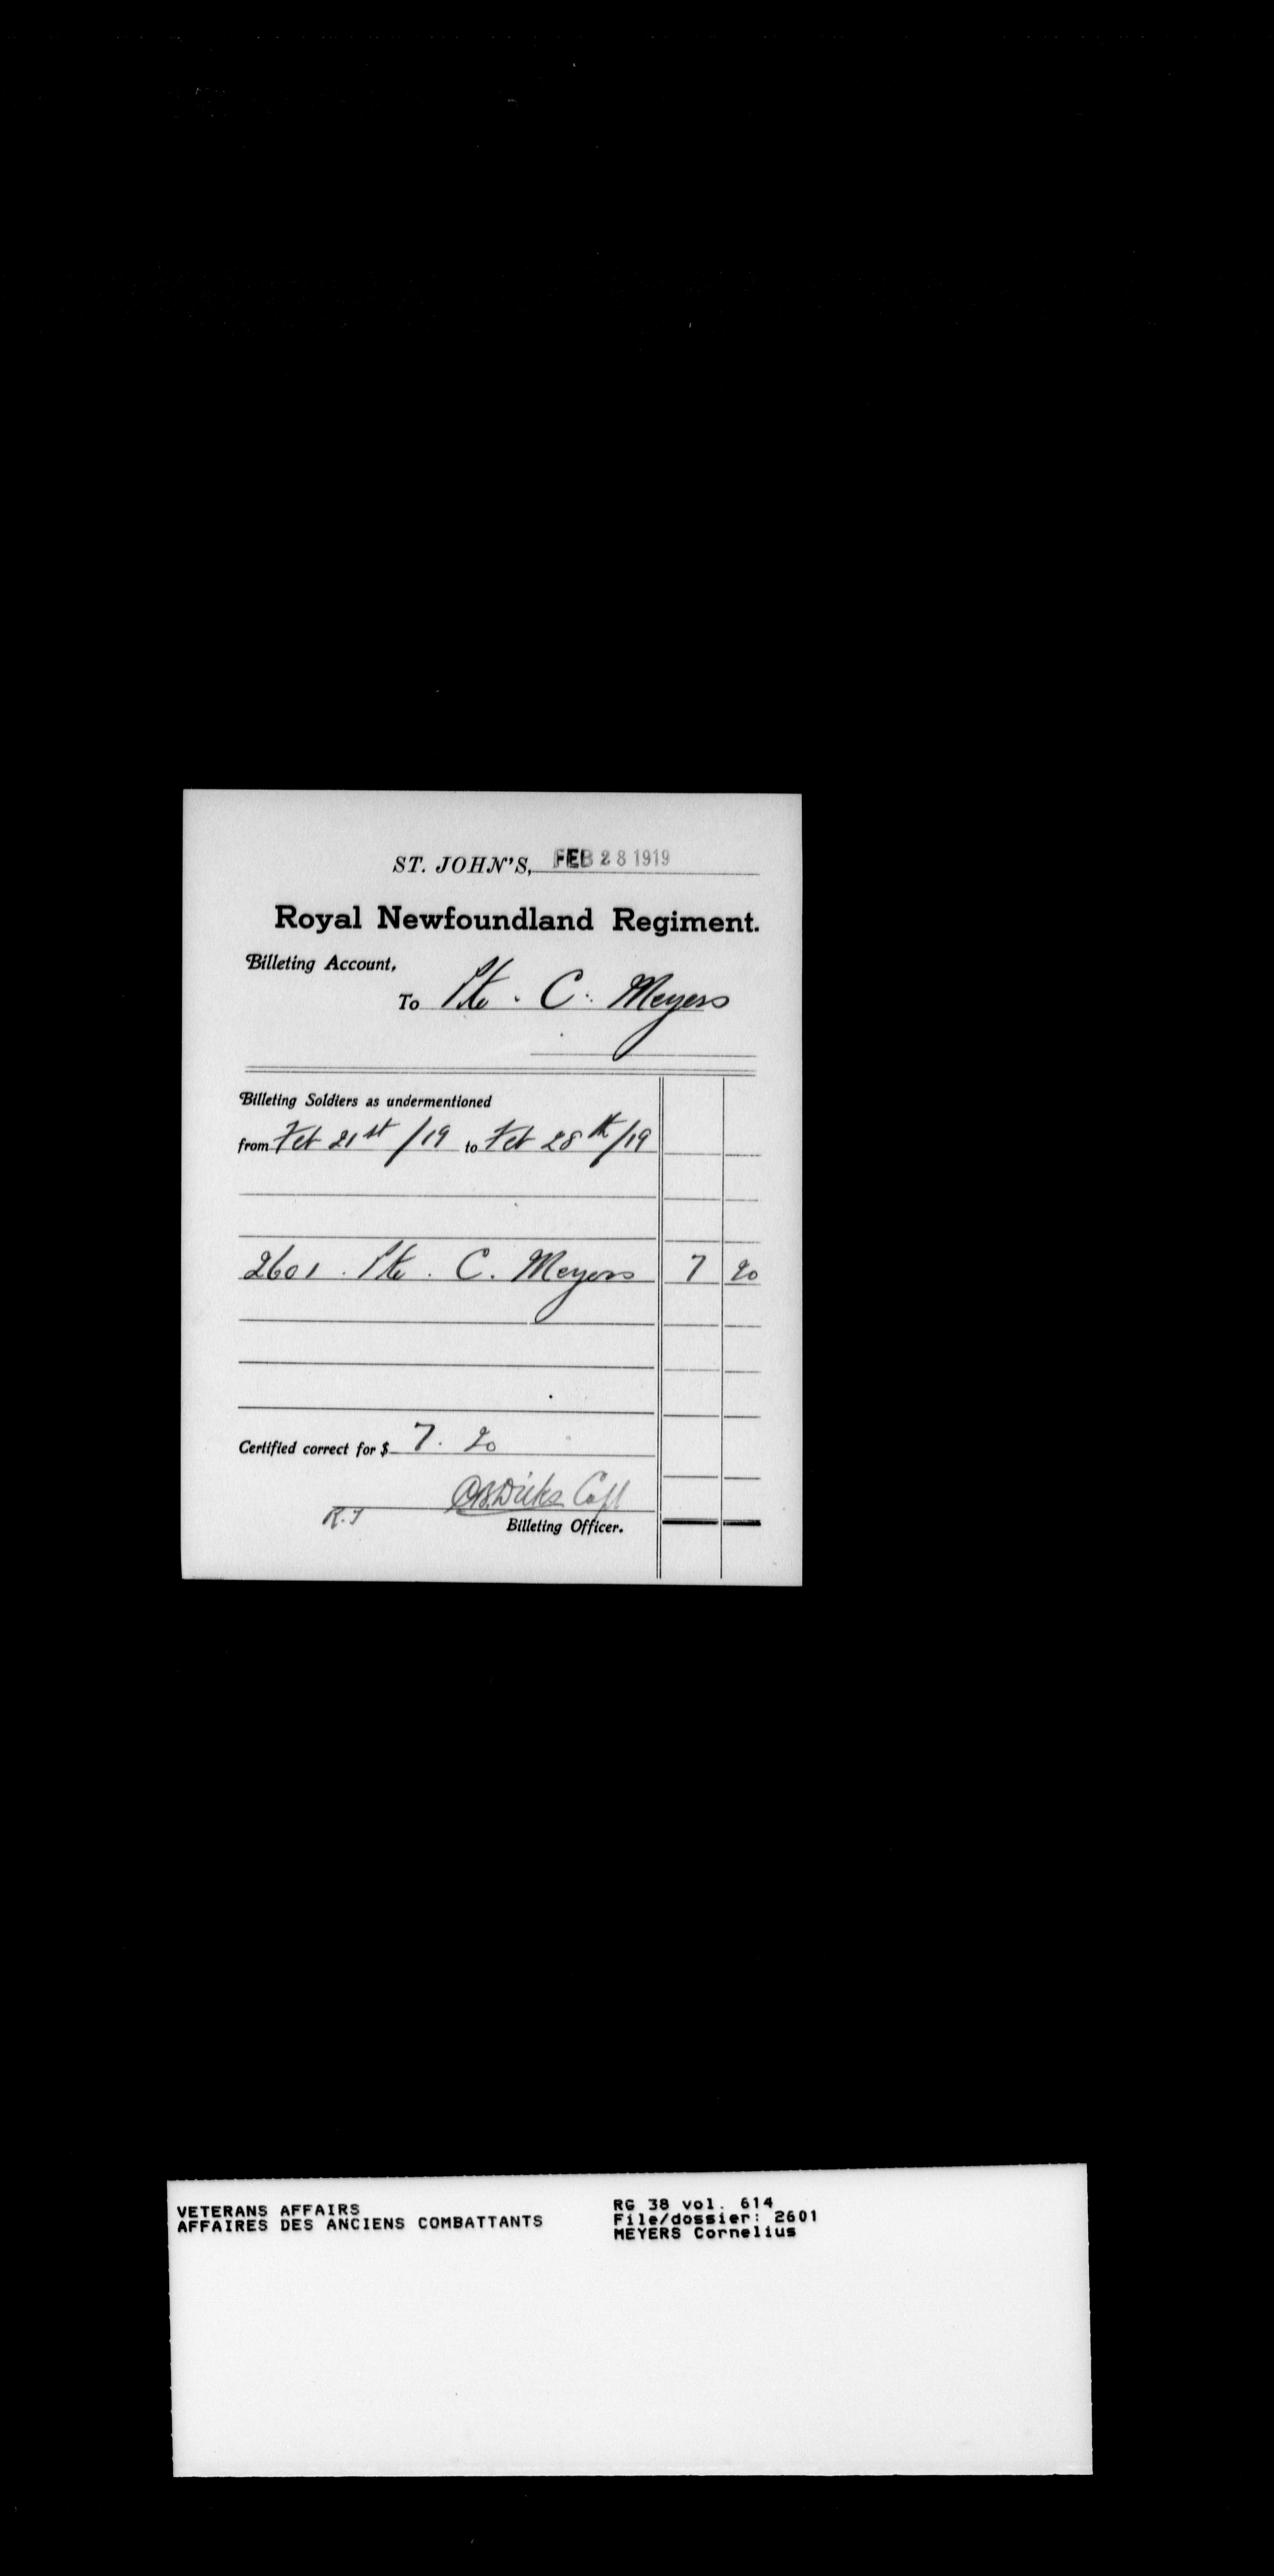 ST. JOHN'S, FEB 28 1919
Royal Newfoundland Regiment.
Billeting Account,
To Pte. C. Meyers
Billeting Soldiers as undermentioned
from Feb 21st/19 to Feb 28th/19
2601. Pte. C. Meyers 7 20
Certified correct for $ 7. 20
Dicks Capt
Billeting Officer.
VETERANS AFFAIRS
AFFAIRES DES ANCIENS COMBATTANTS
RG 38 vol. 614
File/dossier: 2601
MEYERS Cornelius